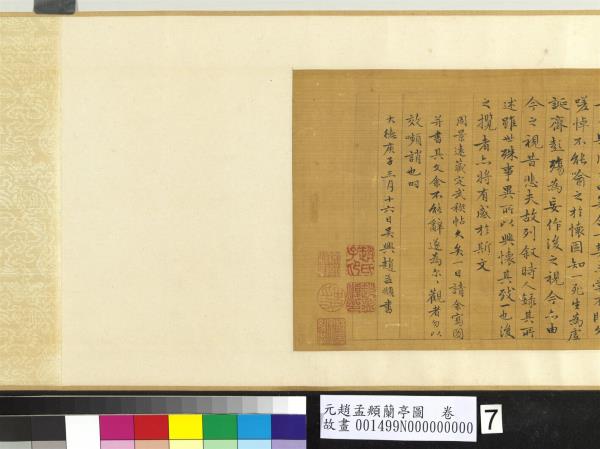 嗟悼不能喻之於懷固知一死生為虛
誕齊彭殤為妄作後之視今亦由
今之視昔悲夫故列敘時人錄其所
述雖世殊事異所以興懷其致一也後
之攬者亦將有感於斯文
周景遠藏定武稧帖久矣一日請余寫圖
并書其文余不能辭遂為尔尔觀者勿以
效嚬誚也
大德庚子三月十六日吳興趙孟頫書
趙氏子昂
元趙孟頫蘭亭圖　卷
故畫 001499N000000000
7